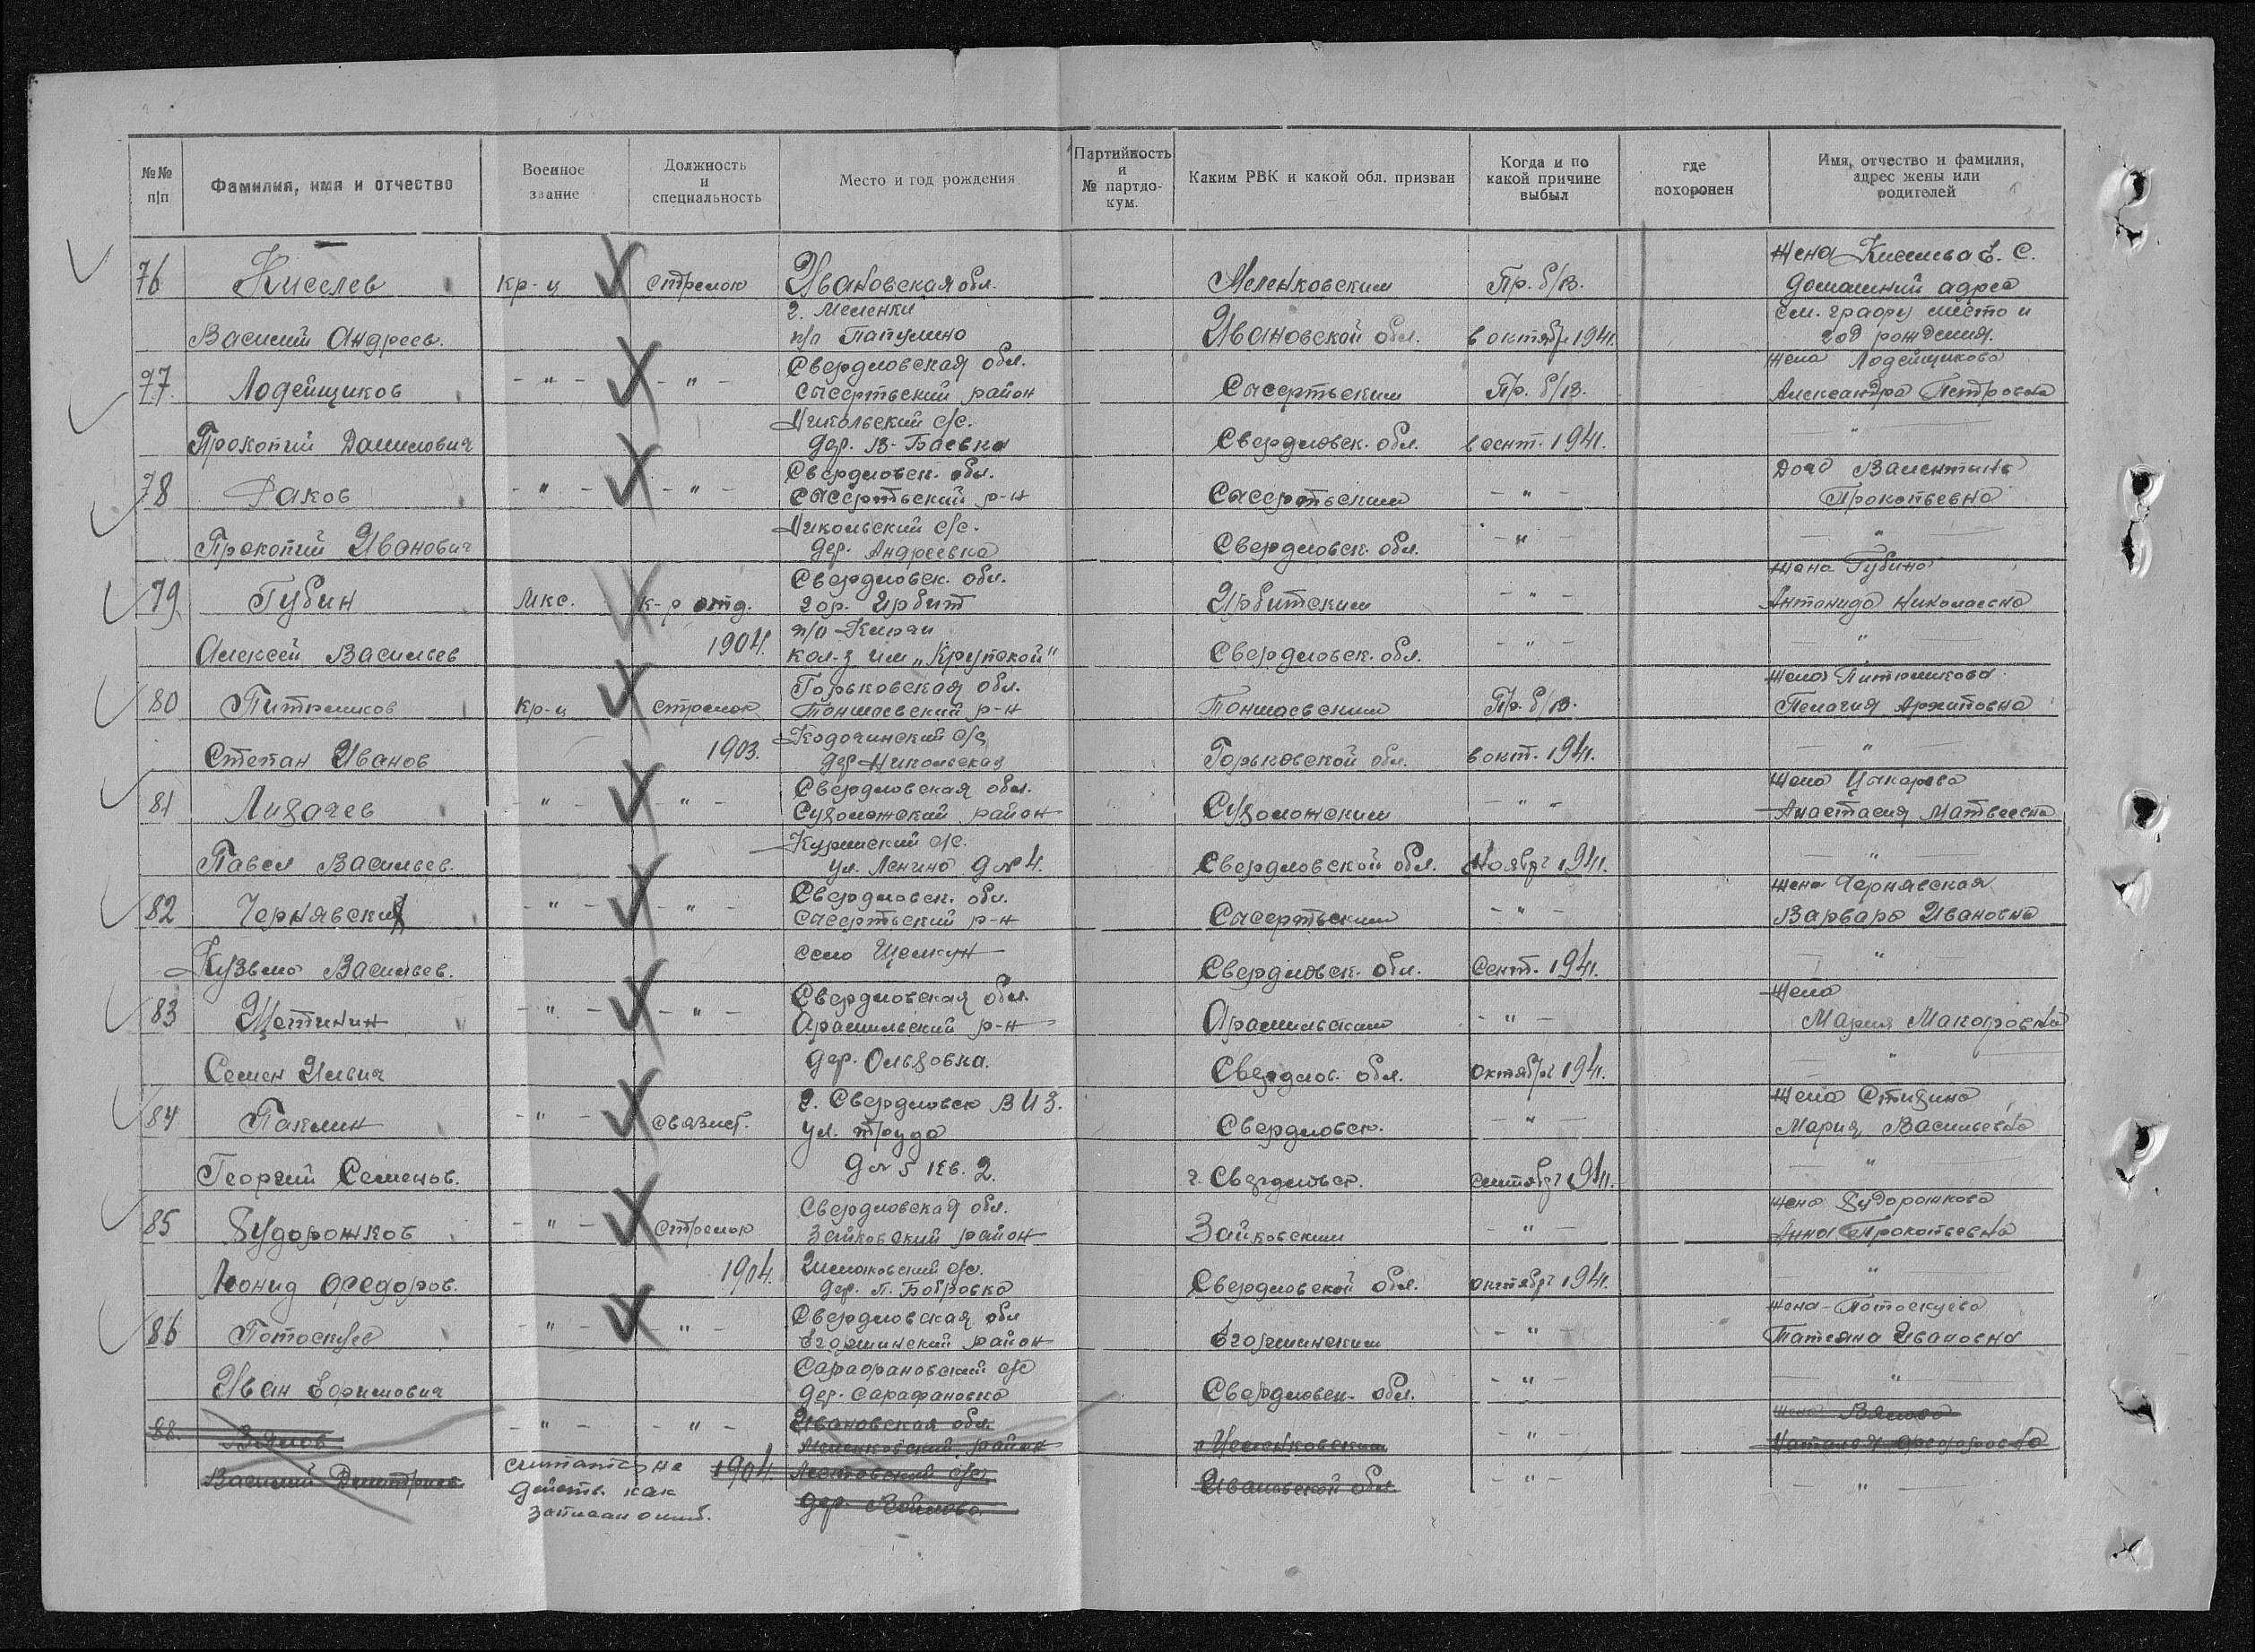 №№ п/п
Фамилия, имя и отчество
Военное звание
Должность и специальность
Место и год рождения
Партийность и № партдокум.
Каким РВК и какой обл. призван
Когда и по какой причине выбыл
где похоронен
Имя, отчество и фамилия, адрес жены или родителей
Жена Киселева Е. С.
76 Киселев кр-ц стрелок Ивановская обл. Меленковским Пр. б/в. домашний адрес
г. Меленки см. графу место и
Василий Андреев. п/о Папулино Ивановской обл. в октябр 1941. год рождения.
Свердловская обл. Жена Лодейщикова
77. Лодейщиков - " - - " - Сысертьский район Сысертьским Пр. б/в. Александра Петровна
Никольский с/с.
Прокопий Данилович дер. В-Баевка Свердловск. обл. в сент. 1941. "
Свердловск. обл. Дочь Валентина
78 Раков - " - - " - Сысертьский р-н Сысертьским - " - Прокопьевна
Никольский с/с.
Прокопий Иванович дер. Андреевка Свердловск. обл. - " - "
Свердловск. обл. Жена Губина
79. Губин мкс. к-р отд. гор. Ирбит Ирбитским - " - Антонида Николаевна
1904. п/о Ключи
Алексей Васильев кол-з им „Крупской" Свердловск. обл. - " - "
Горьковская обл. Жена Питрюшкова
80 кр-ц стрелок Тоншаевский р-н Тоншаевским Пр. б/в. Пелагия Архиповна
1903. с/с
Степан Иванов дер Никольская Горьковской обл. в окт. 1941. "
Свердловская обл. Жена
81 Лихачев - " - - " - Сухоложский район Сухоложским - " - Анастасия Матвеевна
Курьинский с/с.
Павел Васильев. ул. Ленина д № 4. Свердловской обл. Ноябр 1941. "
Свердловск. обл. Жена Чернявская
82 Чернявский - " - - " - Сысертьский р-н Сысертьским - " - Варвара Ивановна
село Щелкун
Кузьма Васильев. Свердловск. обл. Сент. 1941. "
Свердловская обл. Жена
83 Щетинин - " - - " - Арамильский р-н Арамильским - " - Мария Макаровна
дер. Ольховка.
Семен Ильич Свердлов. обл. октябр 1941. "
г. Свердловск ВИЗ. Жена
84 Паклин - " - связист. ул. труда Свердловск. - " - Мария Васильевна
Георгий Семенов. д № 5 кв. 2. г. Свердловск. сентябр 1941. "
Свердловская обл. Жена Худорожкова
85 Худорожков - " - стрелок Зайковский район Зайковским - " - Анна Прокопьевна
1904. с/с.
Леонид Федоров. дер. П. Бобровка Свердловской обл. октябр 1941. "
Свердловская обл Жена-Потоскуева
86 Потоскуев - " - - " - Егоршинский район Егоршинским - " - Татьяна Ивановна
Сарафановский с/с
Иван Ефимович дер. Сарафановка Свердловск. обл. - " - "
Ивановская обл. Жена
88. - " - - " - Меленковский район Меленковским - " - Наталья Федоровна
считать не 1904
Василий Дмитриев действ. как дер. Ивановской обл. - " - "
записан ошиб.